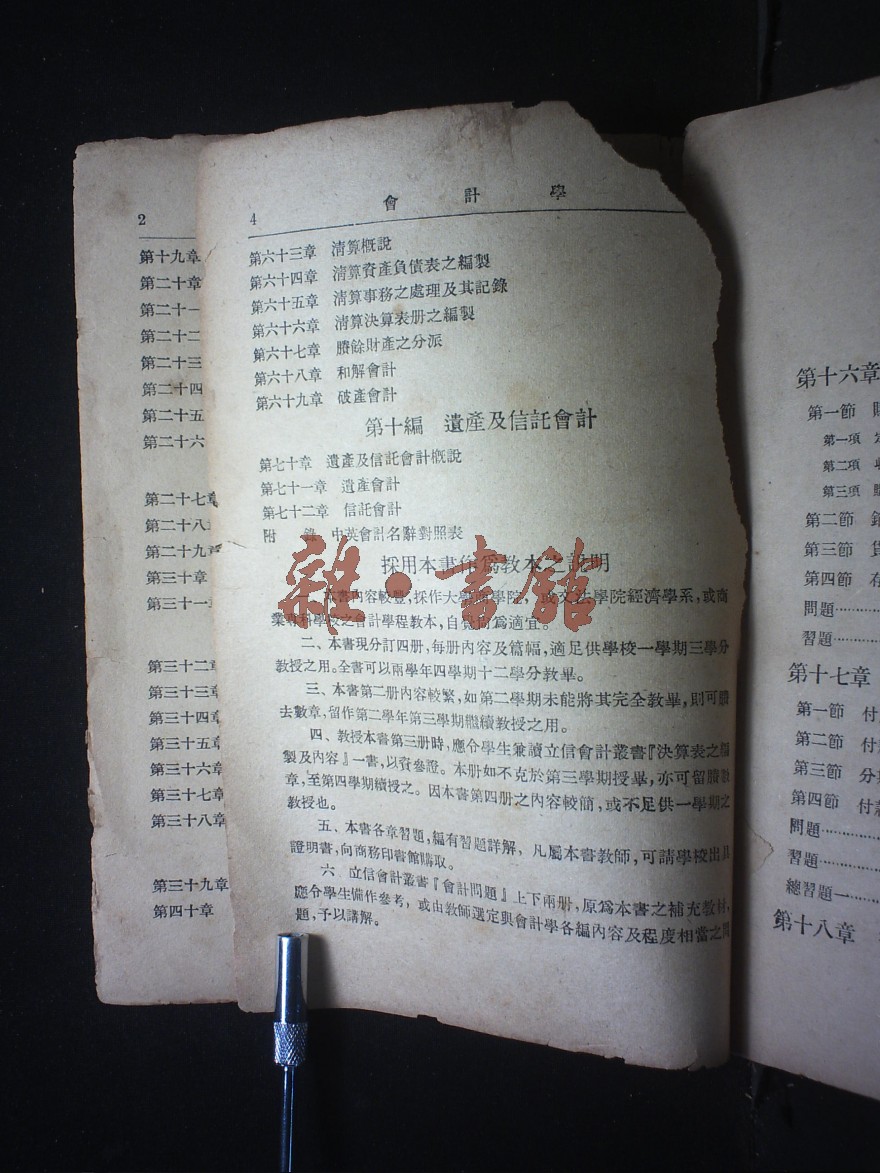 2
第十九章
第二十章
第二十一
第二十二
第二十三
第二十四
第二十五
第二十六
第二十七章
第二十八
第二十九
第三十章
第三十一章
第三十二章
第三十三章
第三十四章
第三十五章
第三十六章
第三十七章
第三十八章
第三十九章
第四十章
4 會計學
第六十三章 清算概說
第六十四章 清算資產負債表之編製
第六十五章 清算事務之處理及其記錄
第六十六章 清算決算表册之編製
第六十七章 賸餘財產之分派
第六十八章 和解會計
第六十九章 破產會計
第十編 遺產及信託會計
第七十章 遺產及信託會計概說
第七十一章 遺產會計
第七十二章 信託會計
附錄 中英會計名辭對照表
採用本書作爲教本之說明
一、本書內容較豐,採作大學商學院,或文法學院經濟學系,或商
業專科學校之會計學程教本,自覺尚爲適宜。
二、本書現分訂四册,每册內容及篇幅,適足供學校一學期三學分
教授之用。全書可以兩學年四學期十二學分教畢。
三、本書第二册內容較繁,如第二學期未能將其完全教畢,則可賸
去數章,留作第二學年第三學期繼續教授之用。
四、教授本書第三册時,應令學生兼讀立信會計叢書『決算表之編
製及內容』一書,以資叄證。本册如不克於第三學期授畢,亦可留賸數
章,至第四學期續授之。因本書第四册之內容較簡,或不足供一學期之
教授也。
五、本書各章習題,編有習題詳解,凡屬本書教師,可請學校出具
證明書,向商務印書館購取。
六、立信會計叢書『會計問題』上下兩册,原爲本書之補充教材,
應令學生備作參考,或由教師選定與會計學各編內容及程度相當之問
題,予以講解。
雜·書館
第十六章
第一節
第一項
第二項
第三項
第二節
第三節
第四節
問題
習題
第十七章
第一節 付
第二節 付
第三節 分
第四節 付
問題
習題
總習題一
第十八章